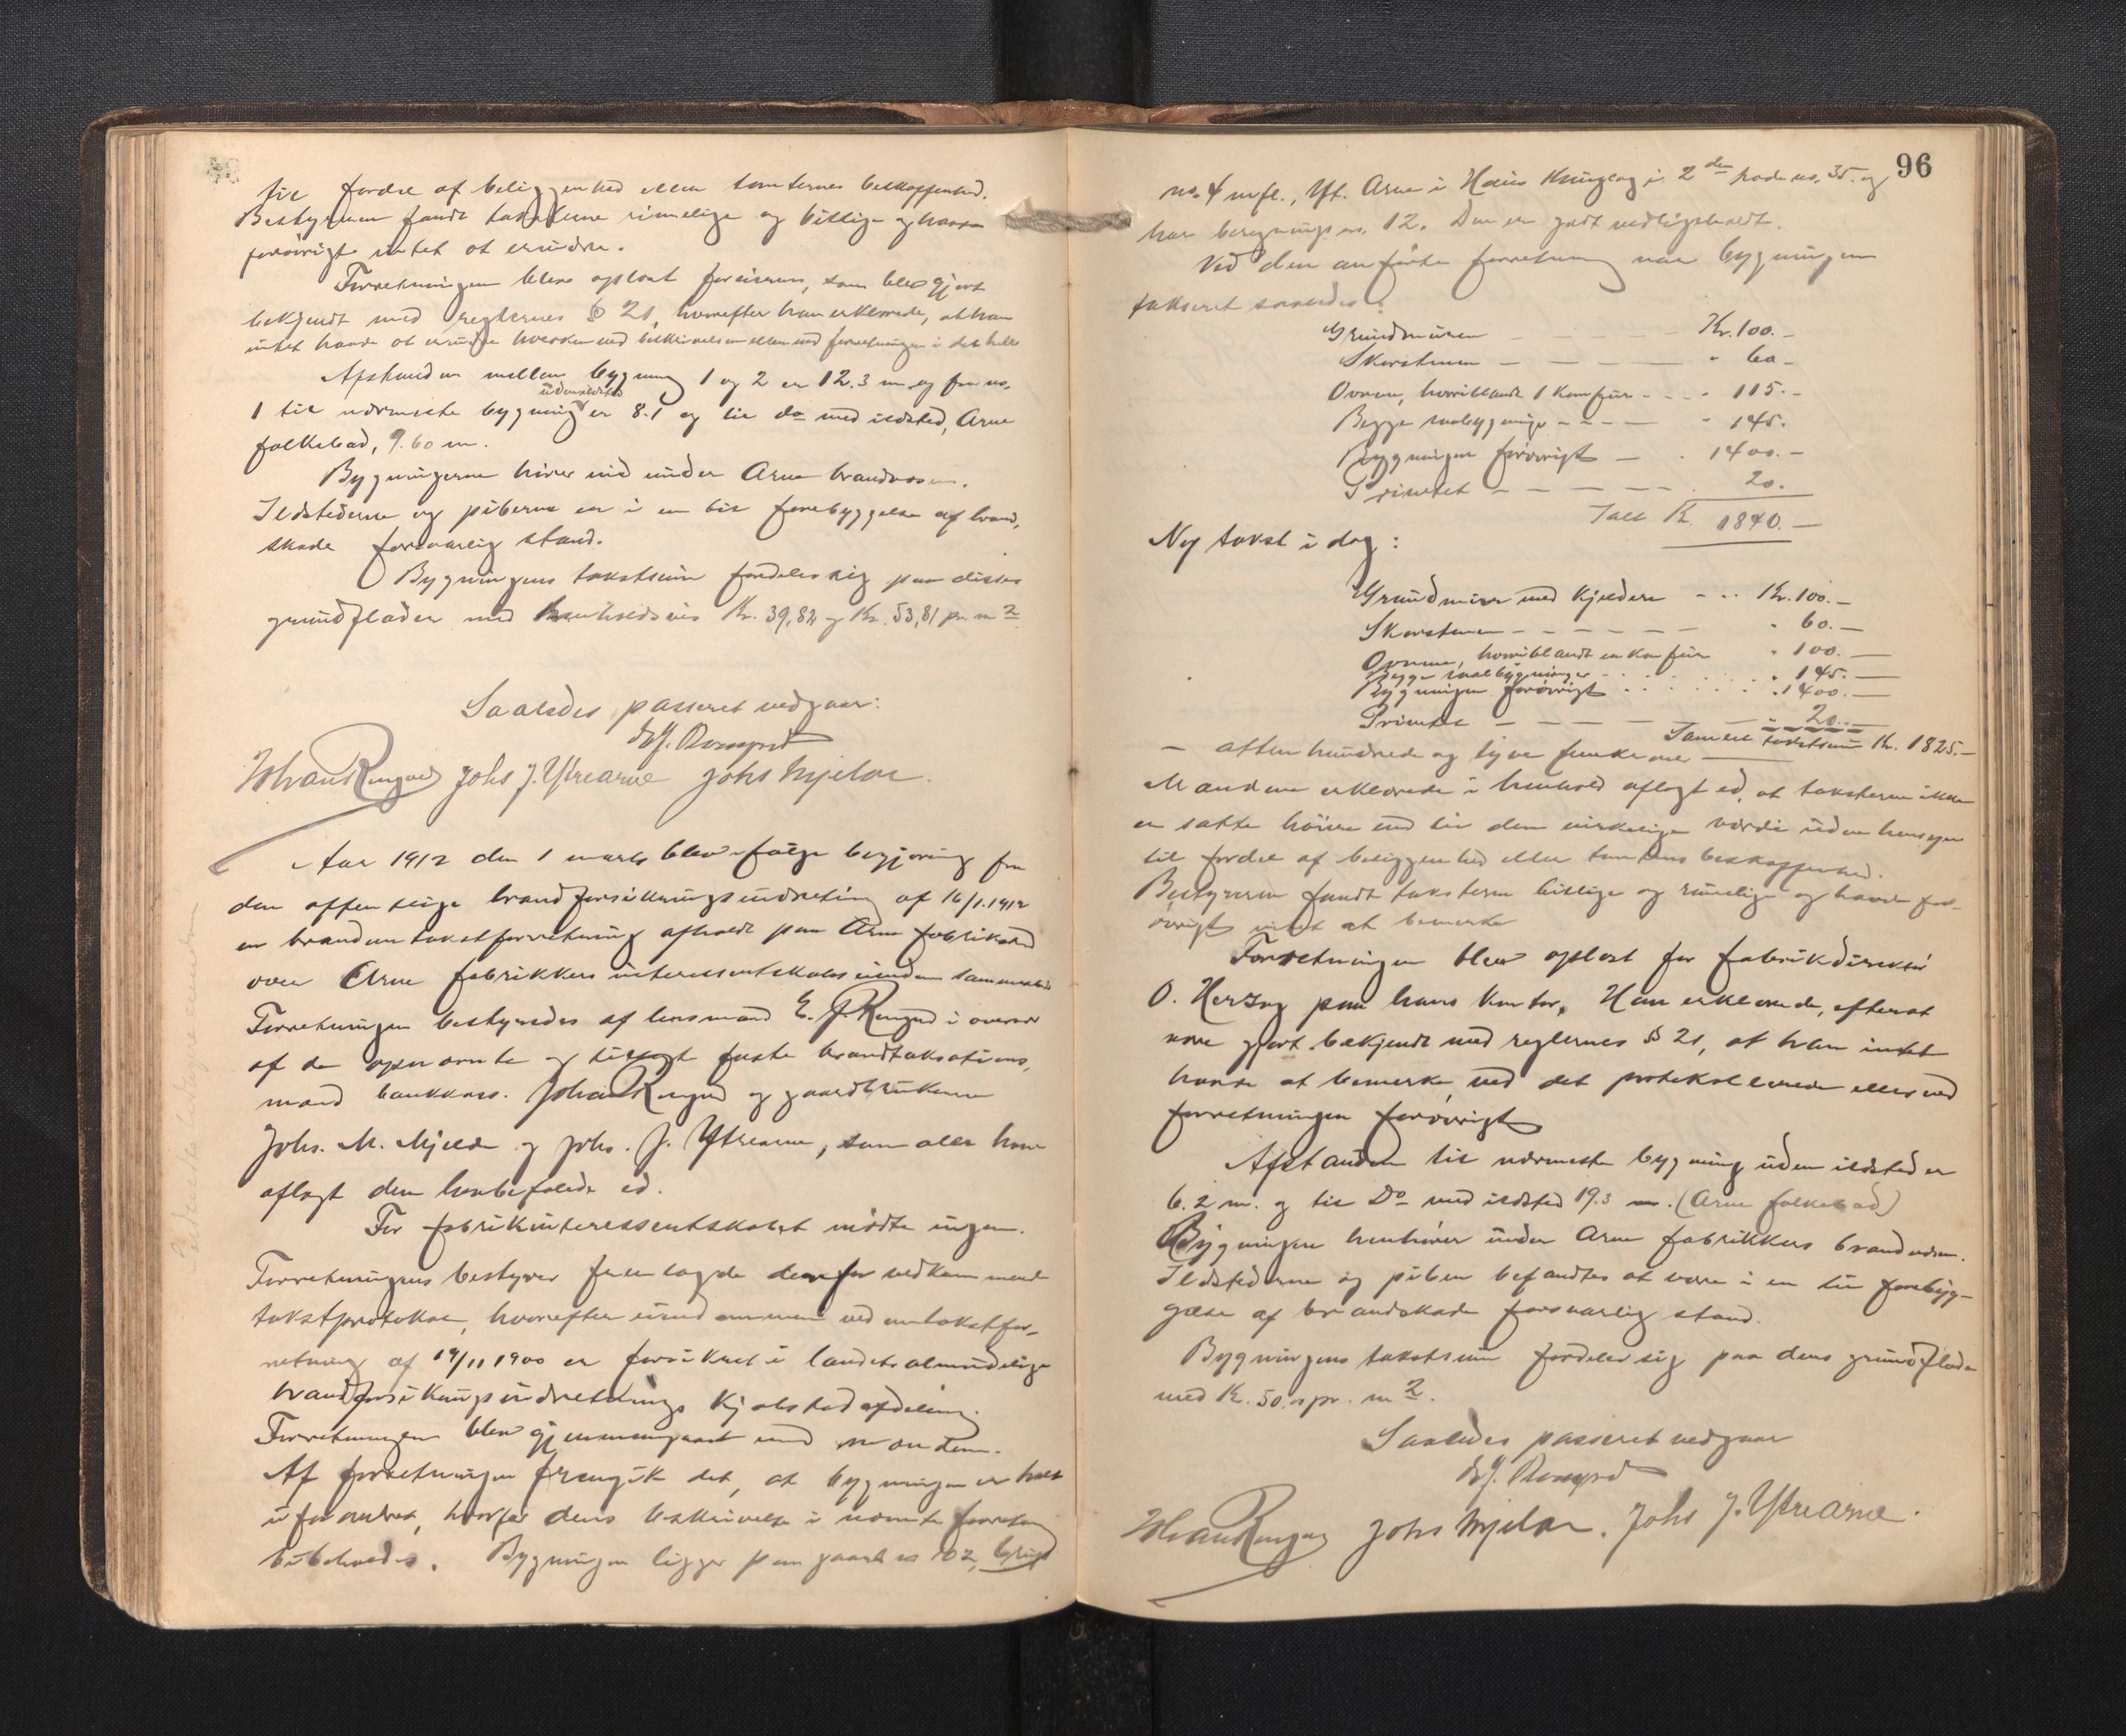 til fordel af beliggenhed eller tomternes beskaffenhed.
Bestyreren fandt taksterne rimelige og billige og havde
forøvrigt intet at erindre.
Forretningen blev oplæst for eieren, som blev gjort
bekjendt med reglernes § 21, hvorefter han erklærede, at han
intet havde at erindre hverken ved beskrivelsen eller ved forretningen i det hele
Afstanden mellem bygning 1 og 2 er 12.3 m og fra no.
1 til nærmeste bygning uden ildsted er 8.1 og til do med ildsted, Arne
folkebad, 9.60 m.
Bygningerne hører ind under Arne brandvæsen.
Ildstederne og piberne er i en til forebyggelse af brand-
skade forsvarlig stand.
Bygningens takstsum fordeler sig paa disses
grundflader med henholdsvis Kr. 39,82 og Kr. 53,81 pr. m2
Saaledes passeret vedgaar:
Johs J. Ytrearne Johs Mjelde.
Aar 1912 den 1 marts blev ifølge begjæring fra
den offentlige brandforsikringsindretning af 16/1.1912
en brandomtakstforretning afholdt paa Arne fabriksted
over Arne fabrikkers interessentskabs eiendom sammesteds
Forretningen bestyredes af lensmand E. J. i overvær
af de opnævnte og faste brandtakstations-
mænd bankkass. Johan og gaardbrukerne
Johs. M. Mjelde og Johs. J. Ytrearne, som alle have
aflagt den lovbefalede ed.
For fabrikinteressentskabet mødte ingen.
Forretningens bestyrer fremlagde den for vedkommende
takstprotokol, hvorefter eiendommen ved omtakstfor-
retning af 19/11 1900 er forsikret i landets almindelige
brandforsikringsindretnings Kjøbstadafdeling.
Forretningen blev gjennemgaaet med mændene.
Af forretningen fremgik det, at bygningen er helt
uforandret, hvorfor dens beskrivelse i nævnte forretning
bibeholdes. Bygningen ligger paa gaards no 102, brugs
96
no. 4 m fl., Yt. Arne i Haus tinglag i 2den rode no. 35. og
har bygnings no. 12. Den er godt vedligeholdt.
Ved den anførte forretning var bygningen
takseret saaledes:
Grundmuren Kr. 100.-
Skorstenen " 60 -
Ovnene, heriblandt 1 komfur " 115.-
Begge tilbygninger " 145.
Bygningen forøvrigt " 1400.-
Privetet 20.
Talt Kr. 1840.-
Ny takst i dag:
Grundmur med kjeldere Kr. 100.-
Skorstenen " 60.-
Ovnene, heriblandt en komfur " 100.-
Begge tilbygninger " 145.-
Bygningen forøvrigt " 1400.-
Privetet 20.-
Samlet takstsum Kr. 1825.-
- atten hundrede og tyve fem kroner
Mændene erklærede i henhold aflagt ed, at taksterne ikke
er satte høiere end til den virkelige værdi uden hensyn
til fordel af beliggenhed eller tomtens beskaffenhed.
Bestyreren fandt taksterne billige og rimelige og havde for-
øvrigt intet at bemerke
Forretningen blev oplæst for fabrikdirektør
O. Herzog paa hans kontor. Han erklærede, efterat
være gjort bekjendt med reglernes § 21, at han intet
havde at bemerke ved det protokollerede eller ved
forretningen forøvrigt
Afstanden til nærmeste bygning uden ildsted er
6.2 m. og til Do med ildsted 19.3 m. (Arne folkebad)
Bygningen henhører under Arne fabrikkers brandvæsen.
Ildstederne og piben befandtes at være i en til forebyg-
gelse af brandskade forsvarlig stand.
Bygningens takstsum fordeler sig paa dens grundflade
med Kr. 50 pr. m2.
Saaledes passeret vedgaar
Johs Mjelde. Johs J. Ytrearne.